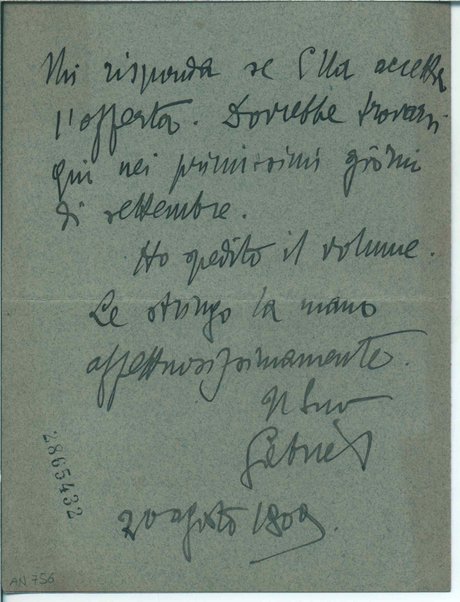 Mi risponda se Ella accetta
l'offerta. Dovrebbe trovarsi
qui nei primissimi giorni
di settembre.
Ho spedito il volume.
Le stringo la mano
affettuosissimamente.
Il suo
Gabriel
20 agosto 1809.
2865432
AN 756